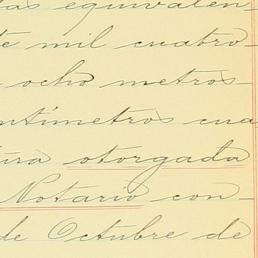 das equivalen-
te mil cuatro-
ocho metros
ntímetros cua
ura otorgada
Notario con-
de Octubre de